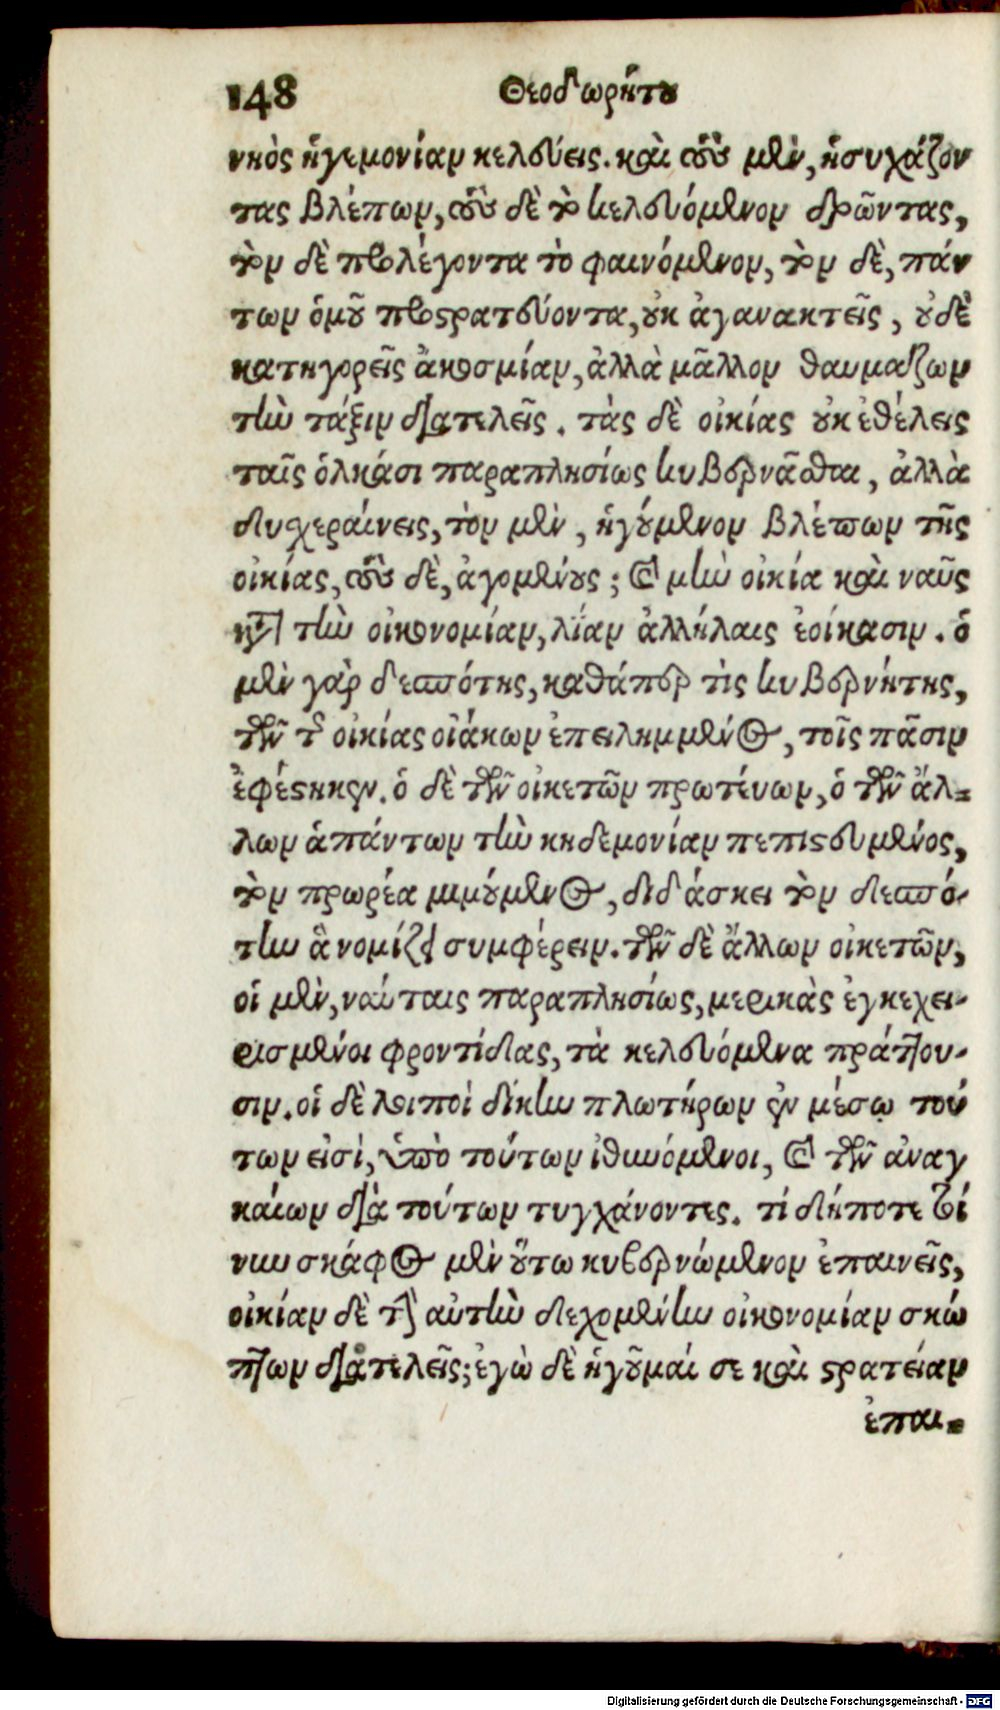 148 Θεοδωρήτου
νηὸς ἡγεμονίαν κελεύεις. καὶ τοὺς μὲν, ἡσυχάζον
τας βλέπων, τοὺς δὲ τὸ κελευόμενον δρῶντας,
τὸν δὲ προλέγοντα τὸ φαινόμενον, τὸν δὲ, πάν
των ὁμοῦ προστατεύοντα, οὐκ ἀγανακτεῖς, οὐδὲ
κατηγορεῖς ἀκοσμίαν, ἀλλὰ μᾶλλον θαυμάζων
τὴν τάξιν διατελεῖς. τὰς δὲ οἰκίας οὐκ ἐθέλεις
ταῖς ὁλκάσι παραπλησίως κυβερνᾶσθαι, ἀλλὰ
δυσχεραίνεις, τὸν μὲν, ἡγούμενον βλέπων τῆς
οἰκίας, τοὺς δὲ, ἀγομένους; καὶ μὴν οἰκία καὶ ναῦς
κατὰ τὴν οἰκονομίαν, λίαν ἀλλήλαις ἐοίκασιν. ὁ
μὲν γὰρ δεσπότης, καθάπερ τὶς κυβερνήτης,
τῶν τῆς οἰκίας οἰάκων ἐπειλημμένος, τοῖς πᾶσιν
ἐφέστηκεν. ὁ δὲ τῶν οἰκετῶν πρωτεύων, ὁ τῶν ἄλ-
λων ἁπάντων τὴν κηδεμονίαν πεπιστευμένος,
τὸν πρωρέα μιμούμενος, διδάσκει τὸν δεσπό-
την ἃ νομίζει συμφέρειν. τῶν δὲ ἄλλων οἰκετῶν,
οἱ μὲν, ναύταις παραπλησίως, μερικὰς ἐγκεχει-
ρισμένοι φροντίδας, τὰ κελευόμενα πράττου-
σιν. οἱ δὲ λοιποὶ δίκην πλωτήρων ἐν μέσῳ τού
των εἰσὶ, ὑπὸ τούτων ἰθυνόμενοι, καὶ τῶν ἀναγ
καίων διὰ τούτων τυγχάνοντες. τί δήποτε τοί
νυν σκάφος μὲν οὕτω κυβερνώμενον ἐπαινεῖς,
οἰκίαν δὲ τὴν αὐτὴν δεχομένην οἰκονομίαν σκώ
πτων διατελεῖς; ἐγὼ δὲ ἡγοῦμαί σε καὶ στρατείαν
ἐπαι-
Digitalisierung gefördert durch die Deutsche Forschungsgemeinschaft - DFG